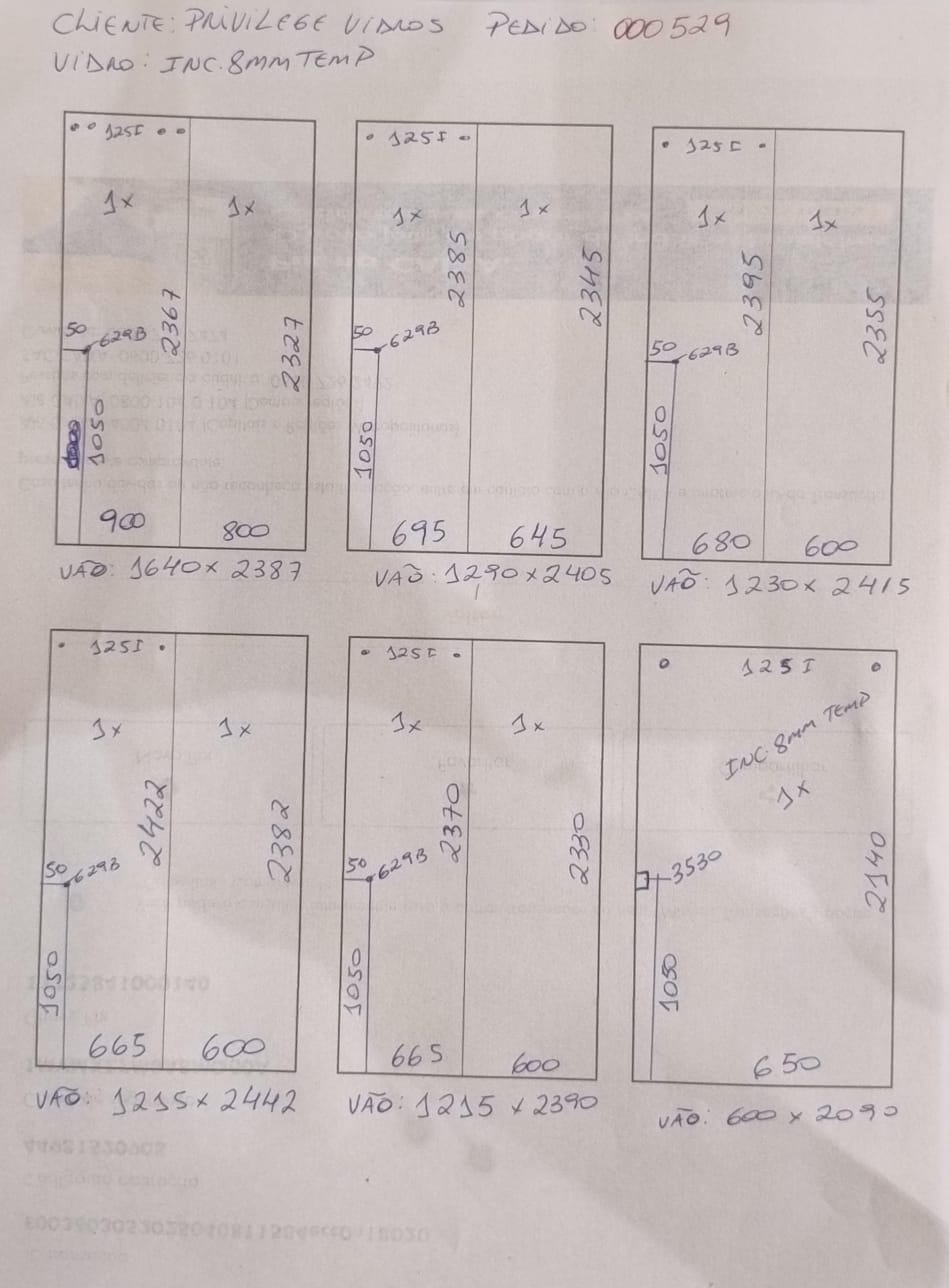 CLIENTE: PRIVILEGE VIDROS PEDIDO: 000529
VIDRO: INC. 8MM TEMP
125I
1x 1x
2367
2327
50 629B
1050
900 800
VÃO: 1640 x 2387
125I
1x 1x
2385
2345
50 629B
1050
695 645
VÃO: 1290 x 2405
125I
1x 1x
2395
2355
50 629B
1050
680 600
VÃO: 1230 x 2415
125I
1x 1x
2422
2382
50 629B
1050
665 600
VÃO: 1215 x 2442
125I
1x 1x
2370
2330
50 629B
1050
665 600
VÃO: 1215 x 2390
125I
INC. 8MM TEMP
1x
3530
2140
1050
650
VÃO: 600 x 2090